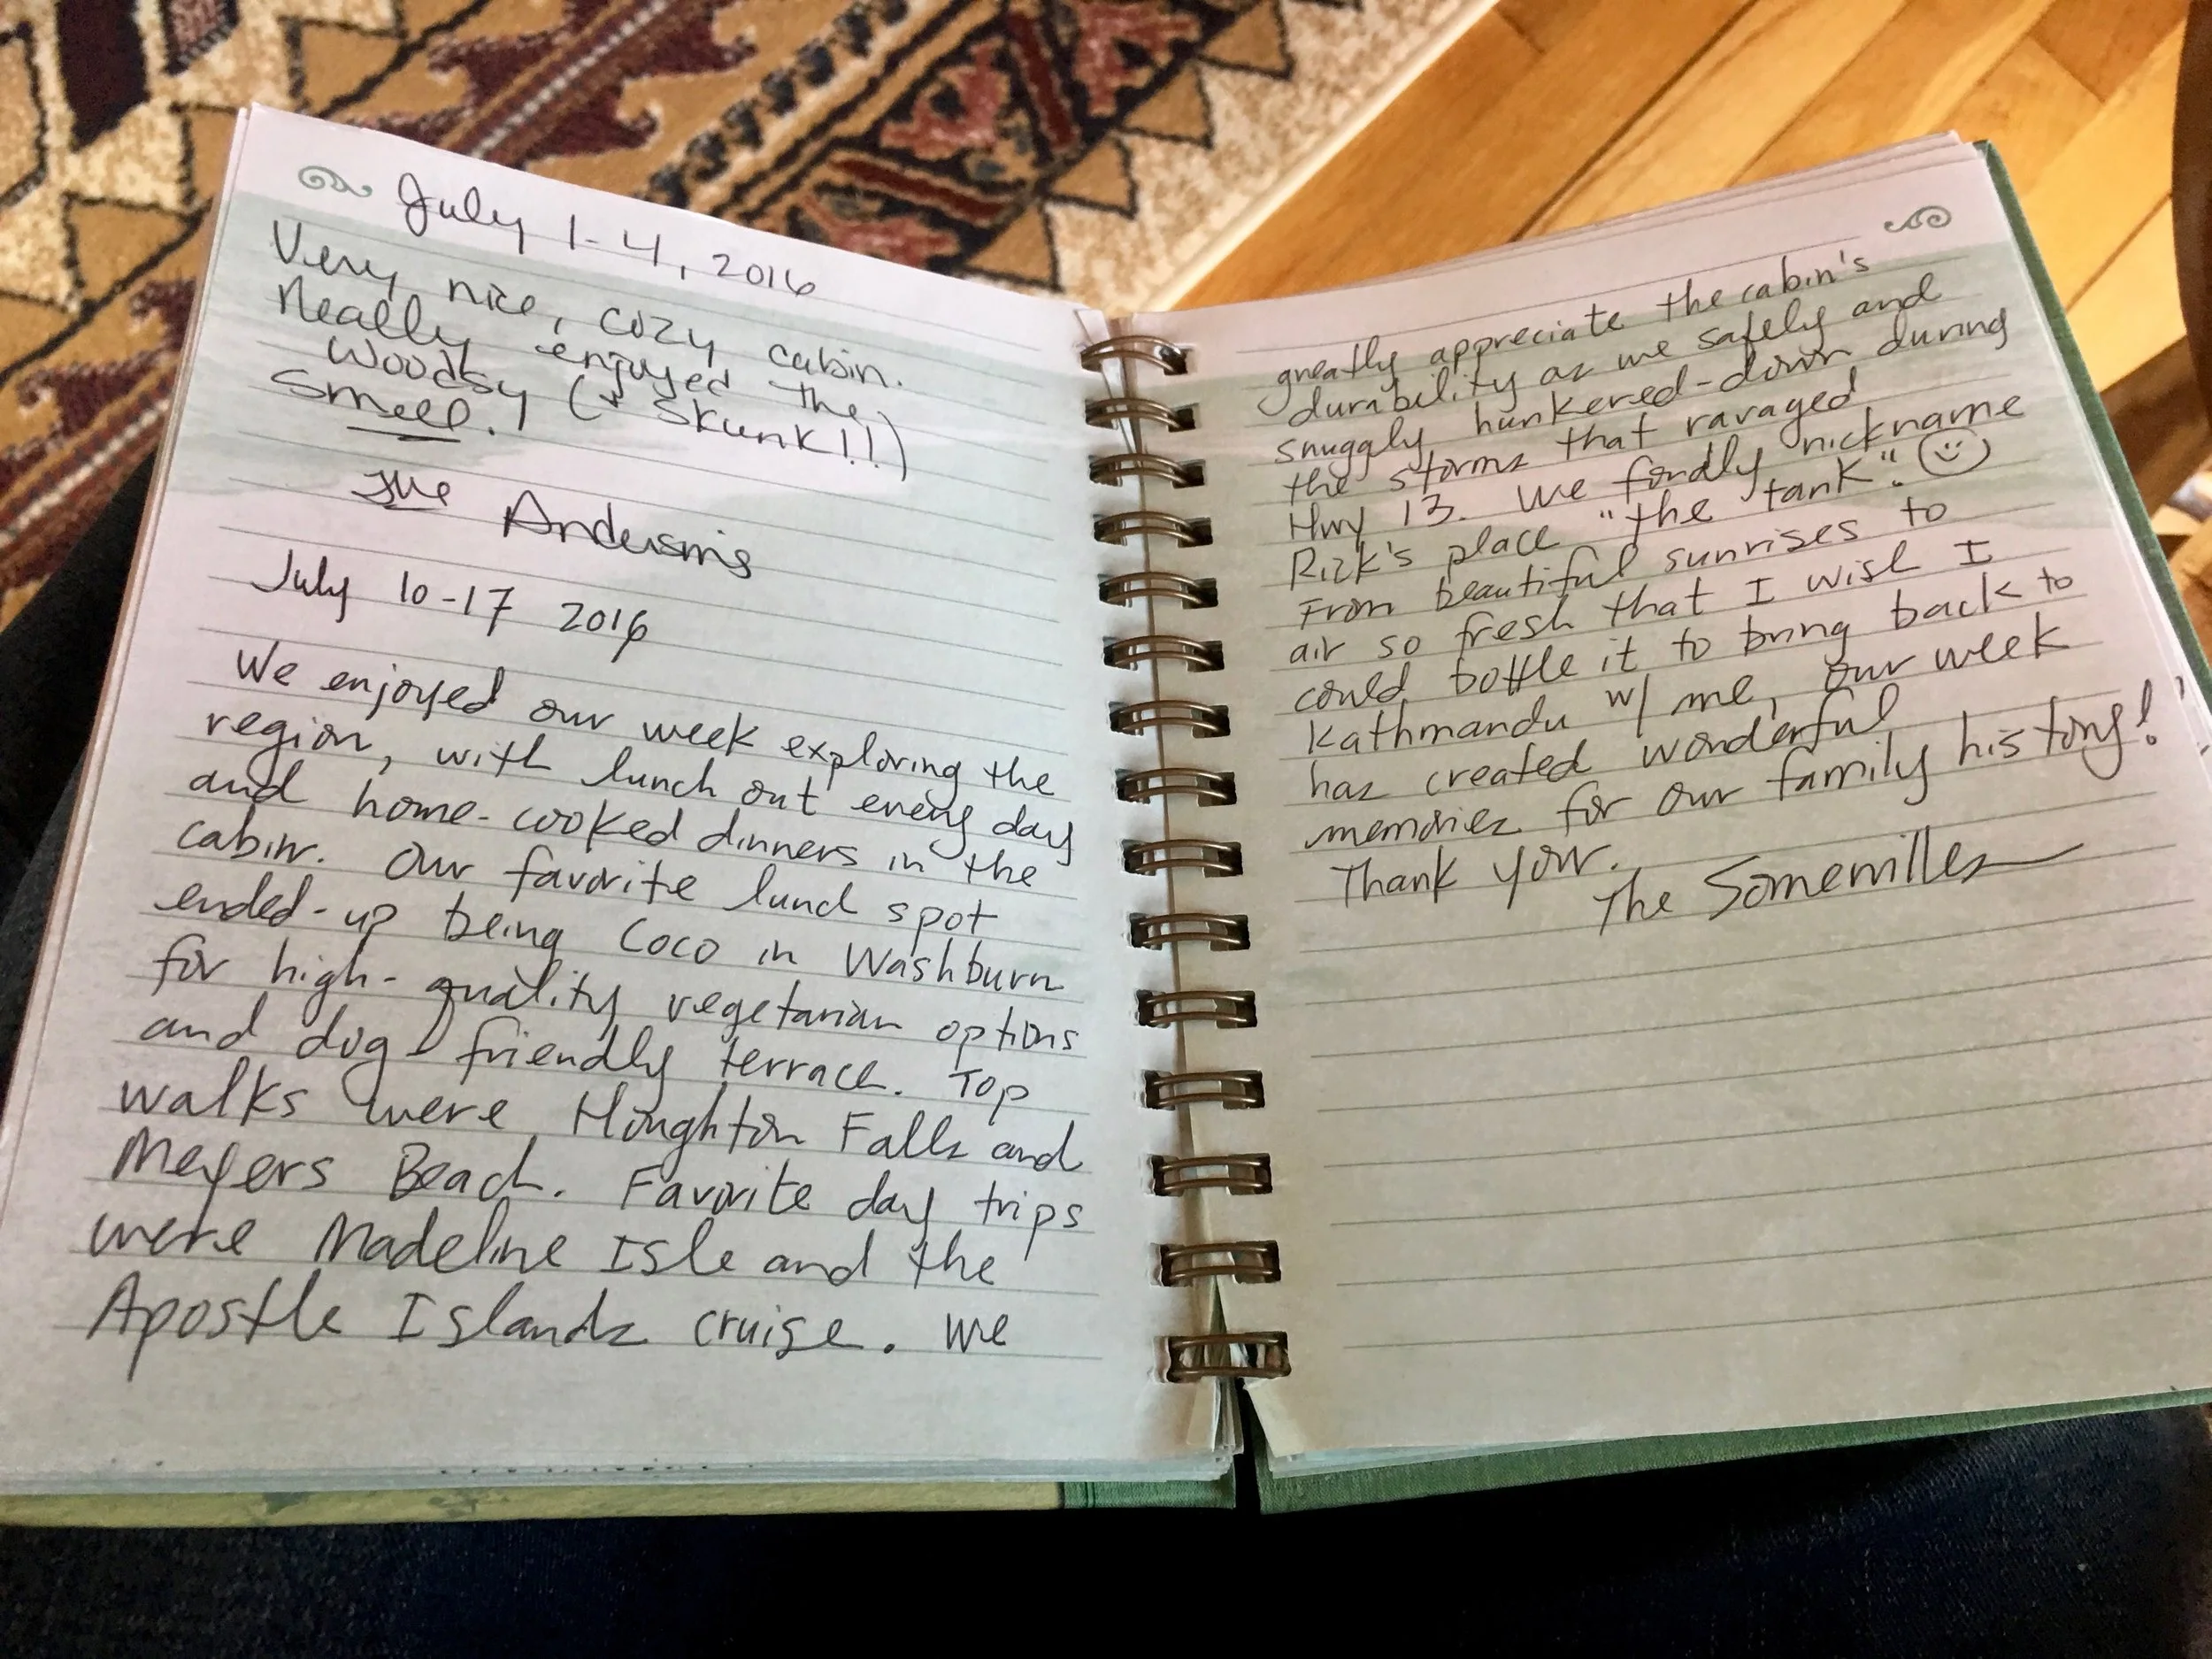 July 1-4, 2016
Very nice, cozy cabin.
Really enjoyed the
woodsy (+ skunk!!)
smell.
The Andersons
July 10-17 2016
We enjoyed our week exploring the
region, with lunch out every day
and home-cooked dinners in the
cabin. Our favorite lunch spot
ended-up being Coco in Washburn
for high-quality vegetarian options
and dog-friendly terrace. Top
walks were Houghton Falls and
Meyers Beach. Favorite day trips
were Madeline Isle and the
Apostle Islands cruise. We
greatly appreciate the cabin's
durability as we safely and
snuggly hunkered-down during
the storms that ravaged
Hwy 13. We fondly nickname
Rick's place "the tank". ☺
From beautiful sunrises to
air so fresh that I wish I
could bottle it to bring back to
Kathmandu w/ me, our week
has created wonderful
memories for our family history!
Thank you.
The Somervilles